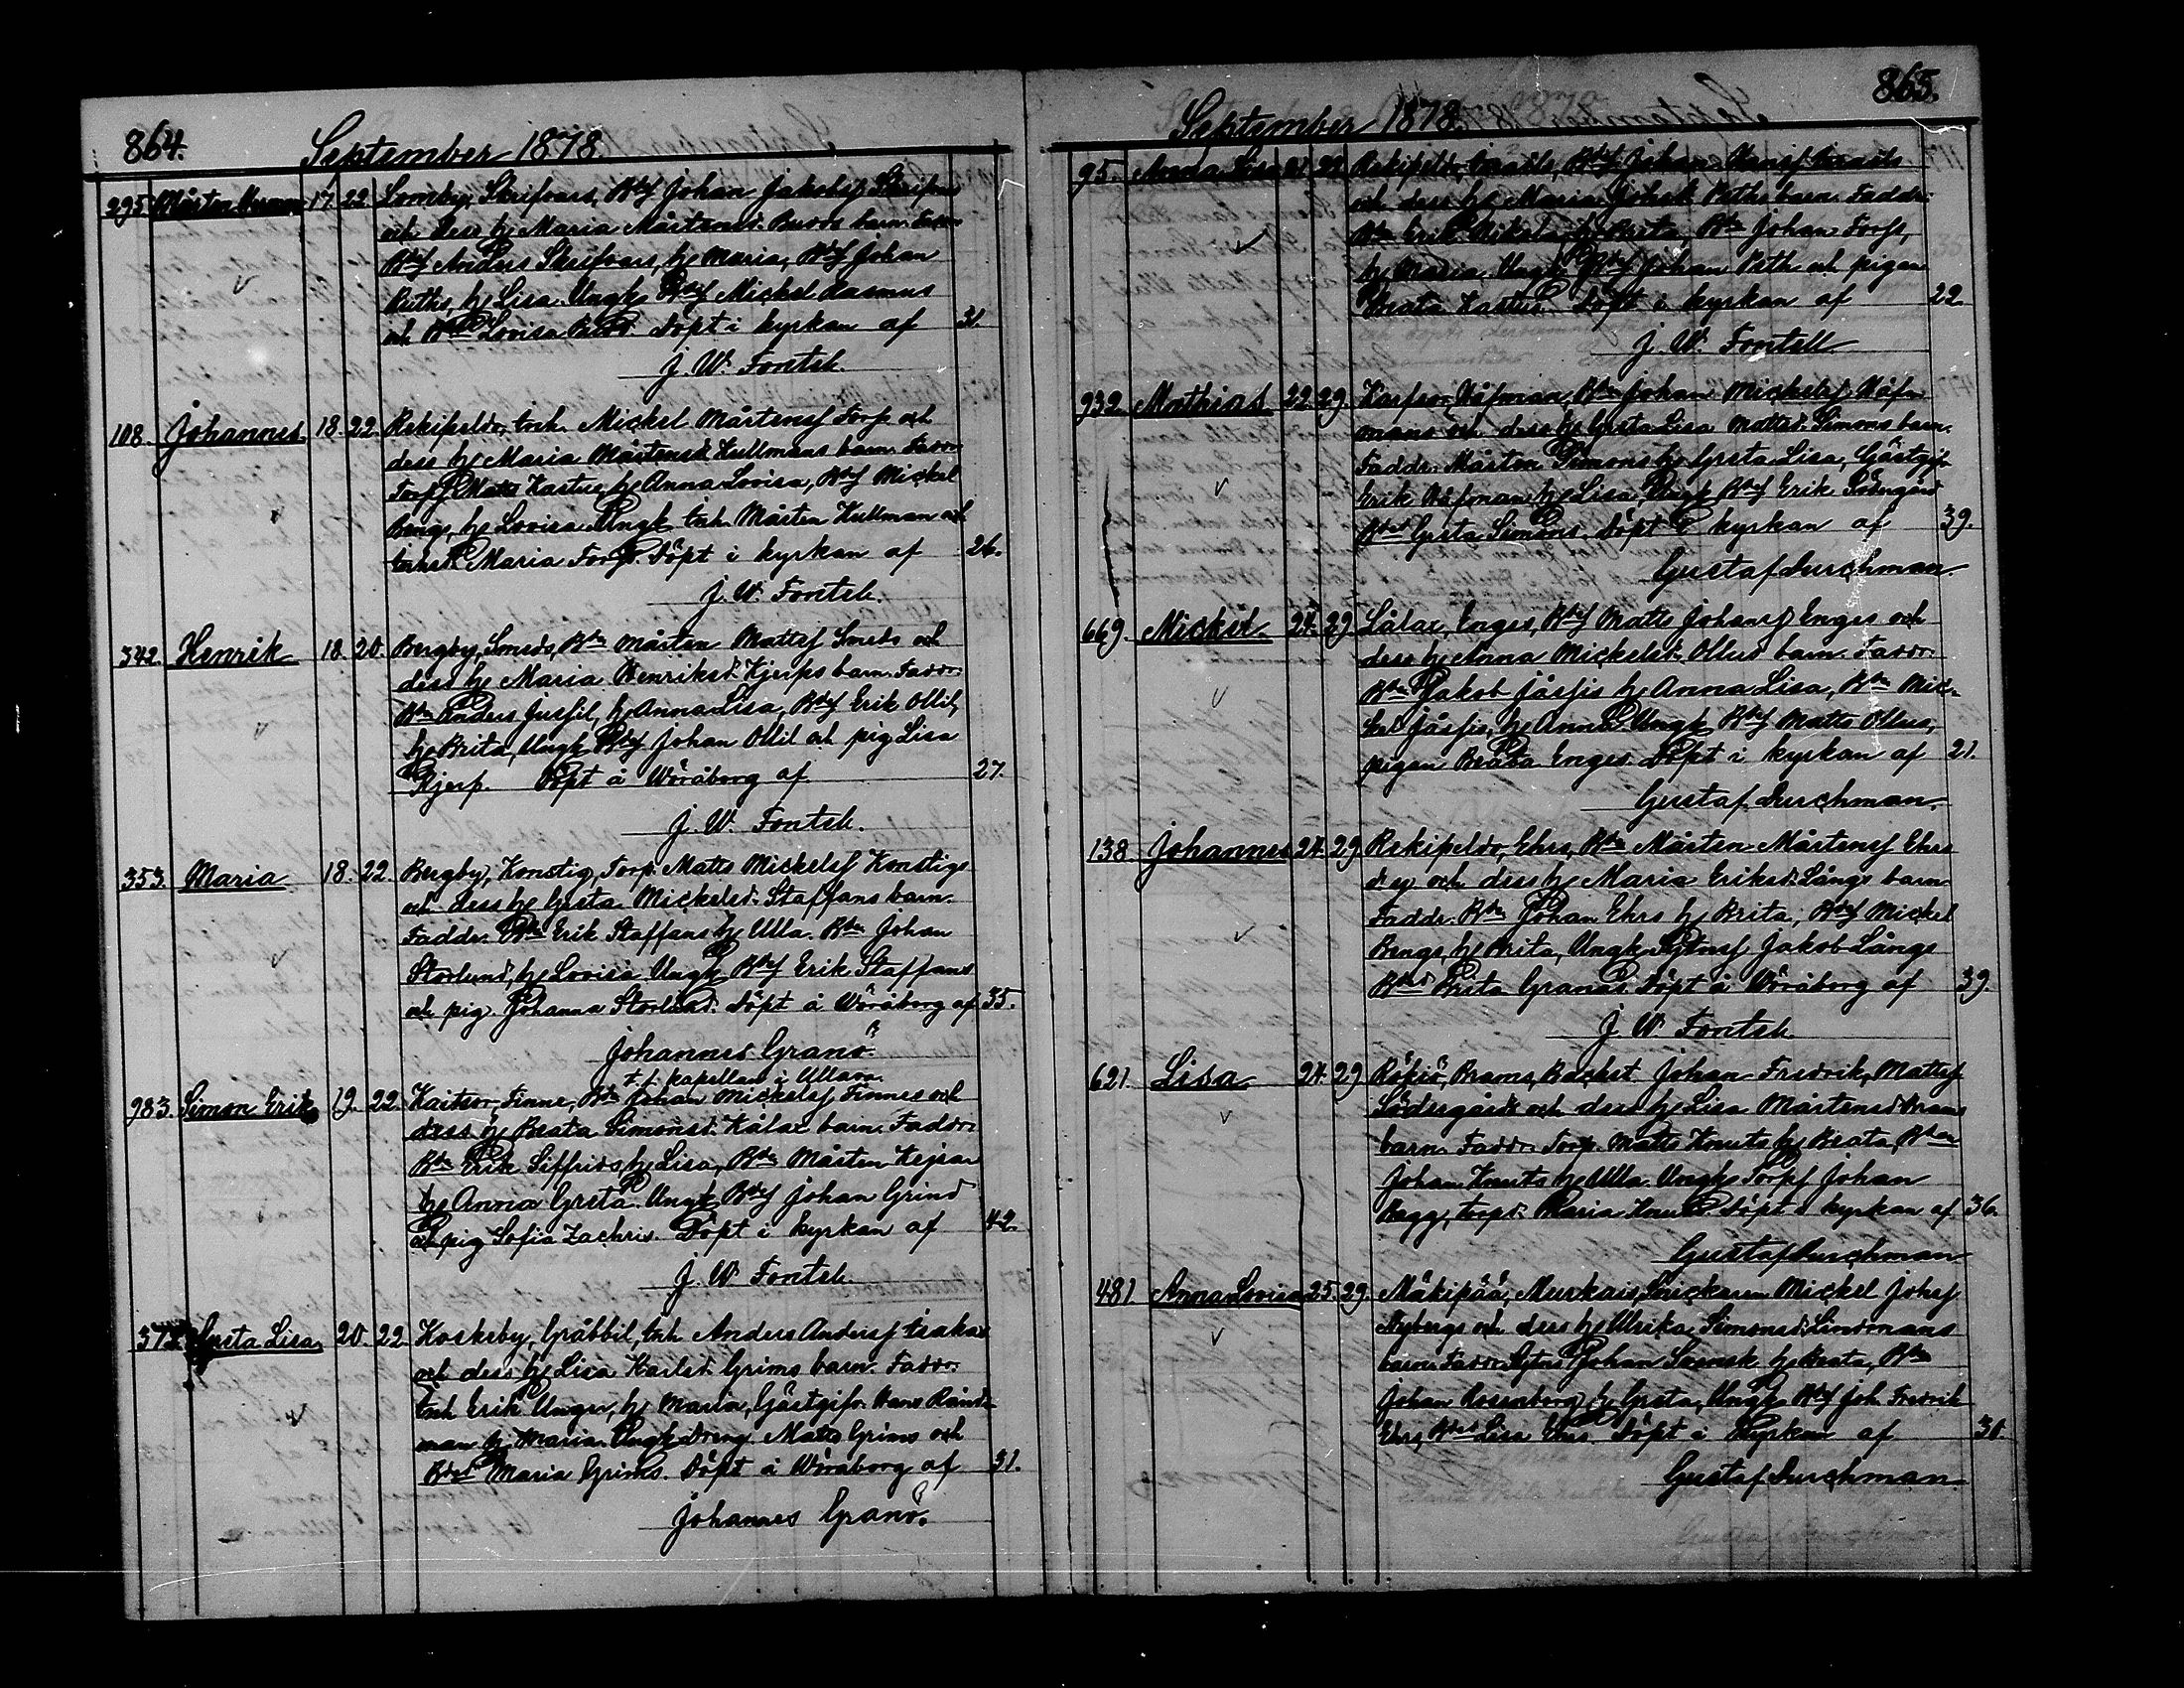 864.
September 1878.
295. Mårten Herman 17. 22. Lomby, Skrifvars, Bdsf Johan Jakobsf Skrifvars
och dess h. Maria Mårtensd. Buss barn. Faddr.
Bdsf Anders Skrifvars, h. Maria, Bdsf Johan
Ruths, h. Lisa. Ungk. Bdsf Mickel Rasmus
och Bdsd Lovisa. Döpt i kyrkan af 31.
J. W. Fontell.
108. Johannes 18. 22. Rekipeldo, Inh. Mickel Mårtensf Torp och
dess h. Maria Mårtensd. Kullmans barn. Faddr.
Torp. Matts Kastus, h. Anna Lovisa, Bdsf Mickel
Bengs, h. Lovisa. Ungk. Inh. Mårten Kullman och
Inhsd. Maria Torp. Döpt i kyrkan af 26.
J. W. Fontell.
342. Henrik 18. 20. Bergby, Smeds, Bdn Mårten Mattsf Smeds och
dess h. Maria Henriksd. Kjerps barn. Faddr.
Bdn Anders Jusfil, h. Anna Lisa, Bdsf Erik Ollil,
h. Brita, Ungk. Bdsf Johan Ollil och pig. Lisa
Kjerp. Döpt å Wöråborg af 27.
J. W. Fontell.
353. Maria 18. 22. Bergby, Konstig, Torp. Matts Mickelsf Konstigs
och dess h. Greta Mickelsd. Staffans barn.
Faddr. Bdn Erik Staffans h. Ulla. Bdn Johan
Storlund, h. Lovisa. Ungk. Bdsf Erik Staffans
och pig. Johanna Storlund. Döpt å Wöråborg af 35.
Johannes Granö
t. f. kapellan i Ullava.
983. Simon Erik 19. 22. Kaitsor, Finne, Bdn Johan Mickelsf Finnes och
dess h. Beata Simonsd. Kålax barn. Faddr.
Bdn Erik Siffrids h. Lisa, Bdn Mårten Kejsar
h. Anna Greta. Ungk. Bdsf Johan Grind
och pig Sofia Zachris. Döpt i kyrkan af 42.
J. W. Fontell.
Greta Lisa 20. 22. Koskeby, Gräbbil, Inh. Anders Andersf Isakas
och dess h. Lisa Karlsd. Grims barn. Faddr.
Inh Erik Unger, h. Maria, Gästgifv. Hans Ränd-
man h. Maria. Ungk. dreng. Matts Grims och
Bdsd Maria Grims. Döpt å Wöråborg af 31.
Johannes Granö.
865.
September 1878.
95. Anna Lisa 21. 22. Rekipeldo, Bdsf Johan Hansf
och dess h. Maria Johsd. Peths barn. Faddr.
Bdn Erik h. Brita, Bdn Johan Torp,
h. Maria. Ungk. Bdsf Johan Peth och pigan
Beata Kastus. Döpt i kyrkan af 22.
J. W. Fontell.
932. Mathias 22. 29. Karfsor, Håfman, Bdn Johan Mickelsf Håf-
mans och dess h. Greta Lisa Mattsd. Simons barn.
Faddr. Mårten Simons h. Greta Lisa, Gästgif.
Erik Håfman h. Lisa, Ungk. Bdsf Erik Södergård
Bdsd Greta Simons. Döpt i kyrkan af 39.
Gustaf Durchman.
669. Mickel 24. 29. Lålax, Enges, Bdsf Matts Johansf Enges och
dess h. Anna Mickelsd. Ollus barn. Faddr.
Bdn Jakob Jåsfis h. Anna Lisa, Bdn Mic-
kel Jåsfis, h. Anna. Ungk. Bdsf Matts Ollus,
pigan Beata Enges. Döpt i kyrkan af 21.
Gustaf Durchman.
138. Johannes 24. 29. Rekipeldo, Ehrs, Bdn Mårten Mårtensf Ehrs
d. y. och dess h. Maria Eriksd. Långs barn.
Faddr. Bdn Johan Ehrs h. Brita, Bdsf Mickel
Bengs, h. Brita, Ungk. Sytnsf Jakob Långs
Bdsd Brita Granas. Döpt å Wöråborg af 39.
J. W. Fontell.
621. Lisa 24. 29. Rökiö, Brams, Backst. Johan Fredrik Mattsf
Södergårds och dess h. Lisa Mårtensd. Brams
barn. Faddr. Torp. Matts Knuts h. Beata, Bdn
Johan Knuts h. Ulla. Ungk. Torpsf Johan
Bagg, torpd. Maria Knuts. Döpt i kyrkan af 36.
Gustaf Durchman.
481. Anna Lovisa 25. 29. Mäkipää, Murkais, Snickaren Mickel Johsf
Nybergs och dess h. Ulrika Simonsd. Lindmans
barn. Faddr. Sytn. Johan Svensk h. Beata, Bdn
Johan Rosenberg, h. Greta, Ungk. Bdsf Joh. Fredrik
Ehrs, Bdsd Lisa Ehrs. Döpt i kyrkan af 30.
Gustaf Durchman.